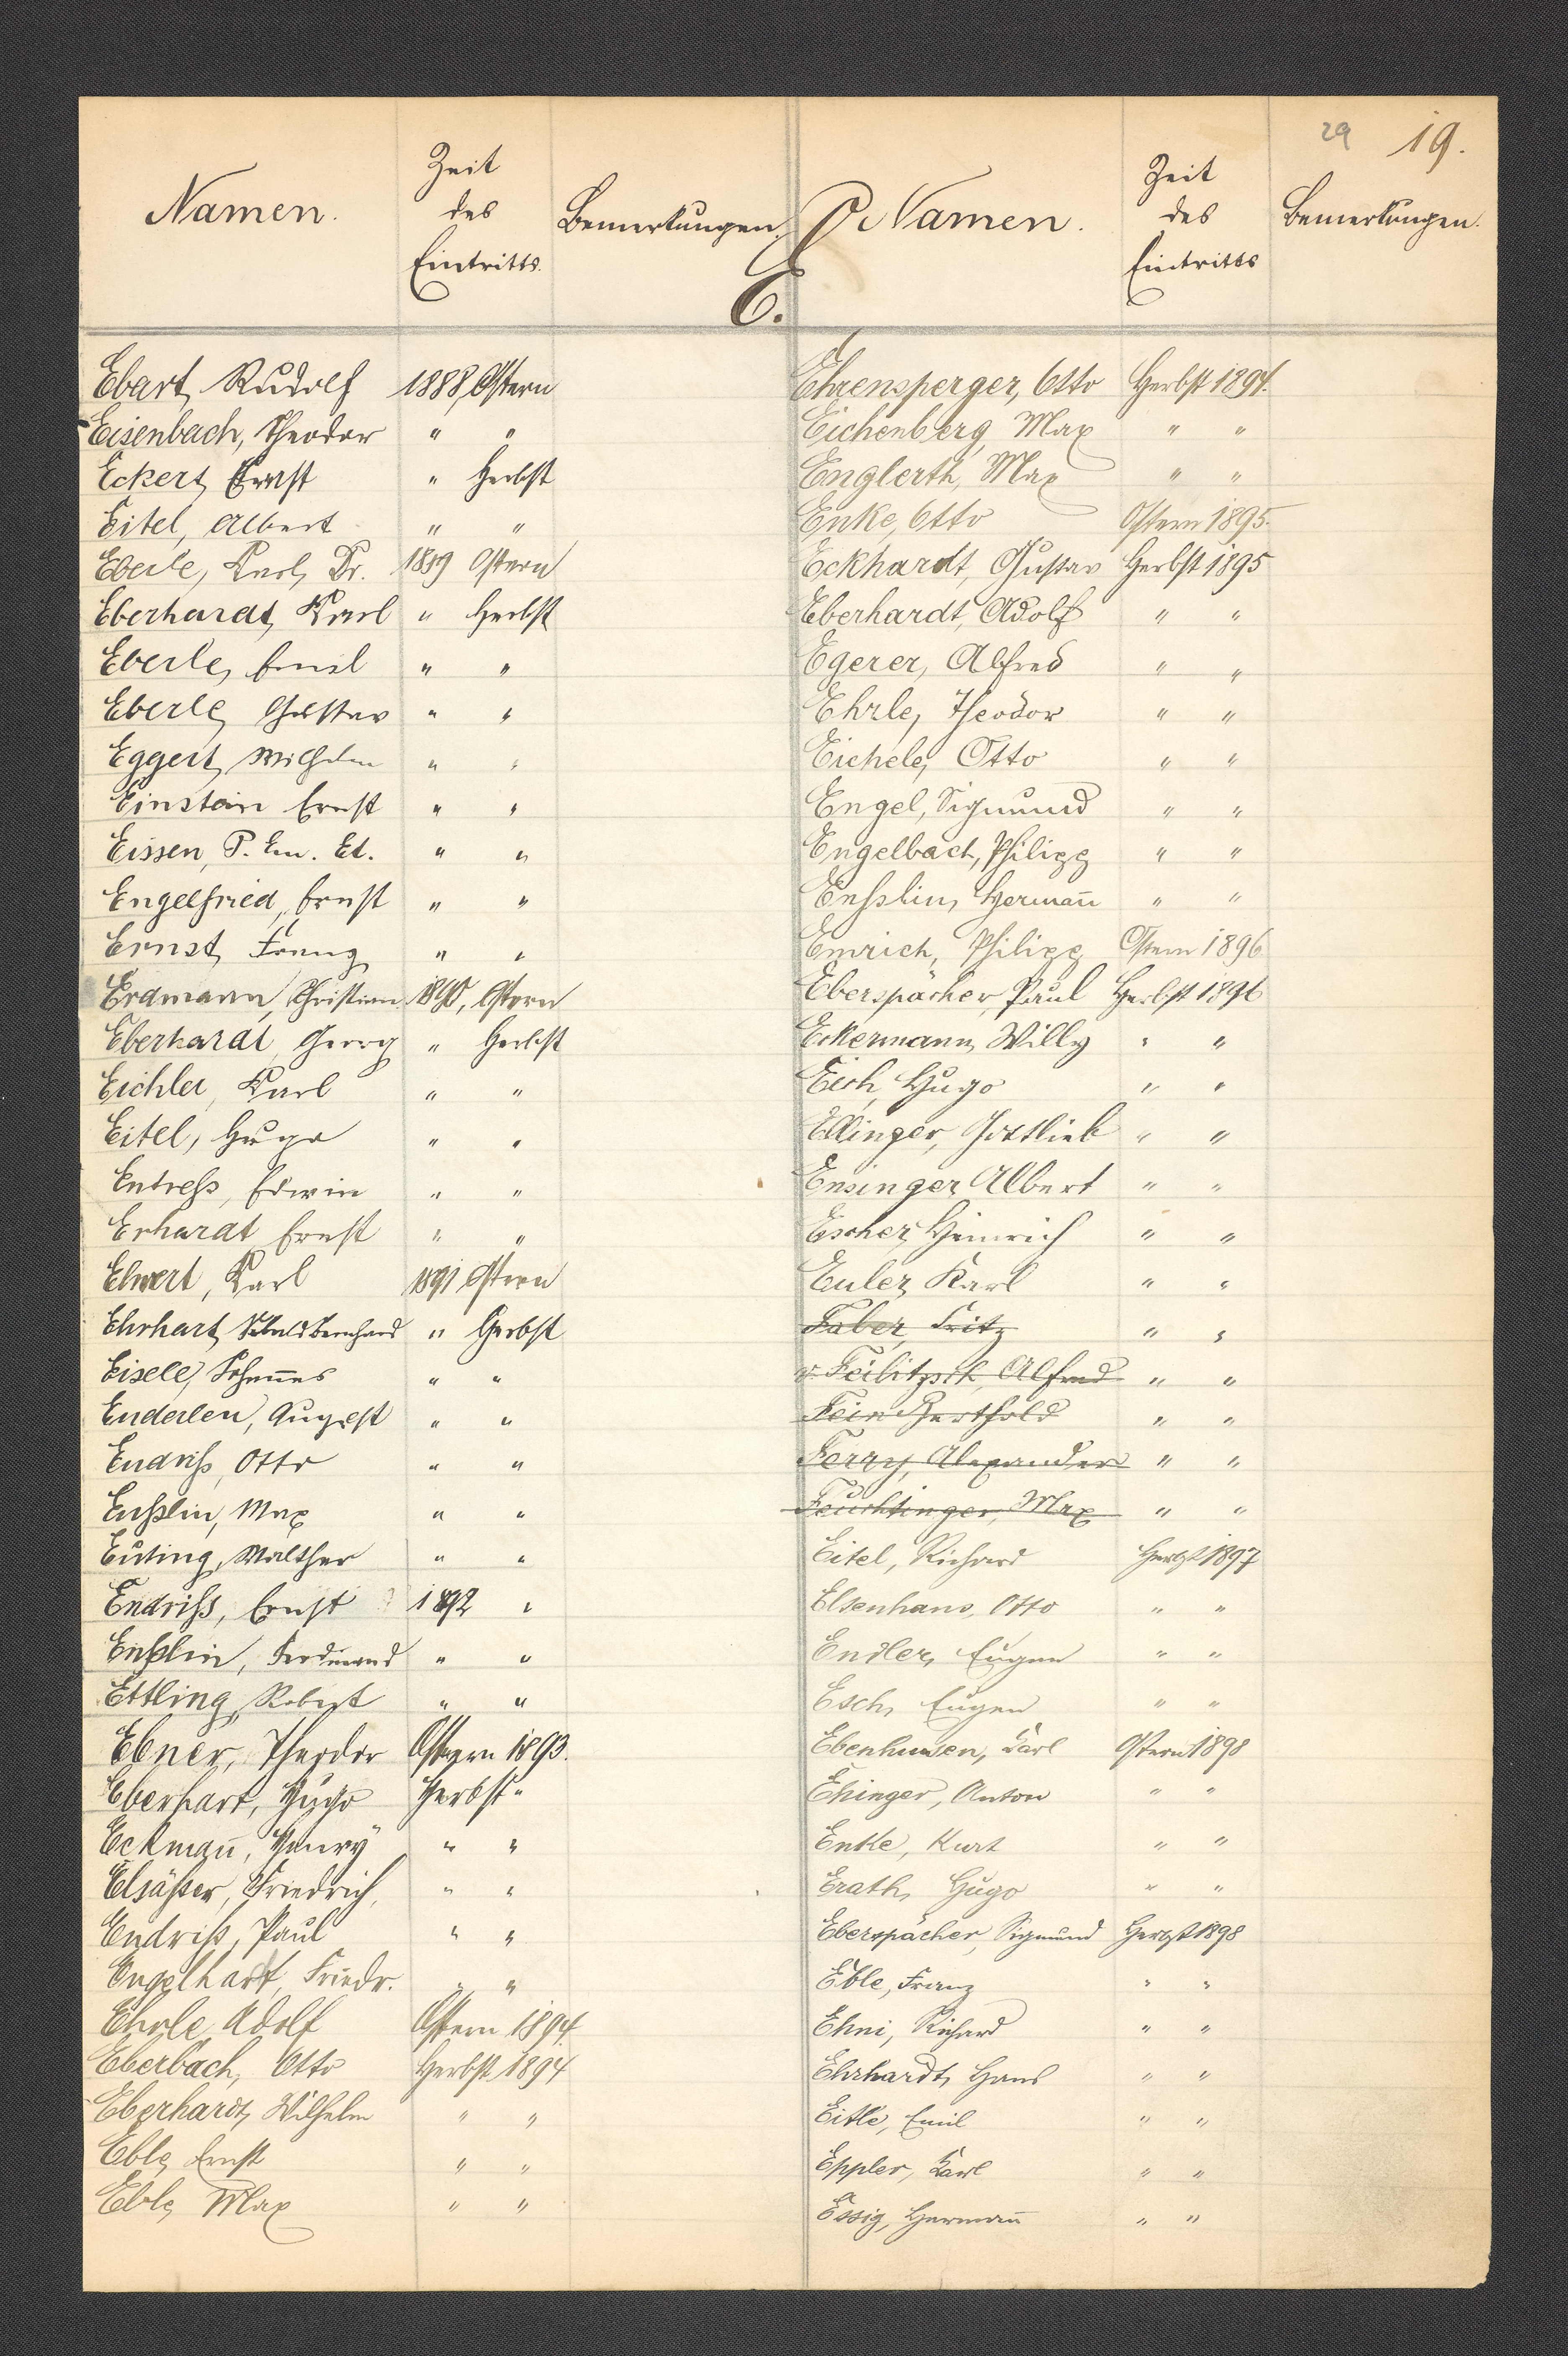 29 19.
Namen. Zeit des Eintritts. Bemerkungen. Namen. Zeit des Eintritts Bemerkungen.
E.
Ebart, Rudolf 1888, Ostern
Eisenbach, Theodor " "
Eckert, Ernst " Herbst
Eitel, Albert " "
Eberle, Karl, Dr. 1889 Ostern
Eberhardt, Karl " Herbst
Eberle, Emil " "
Eberle, Gustav " "
Eggert, Wilhelm " "
Einstein Ernst " "
Eissen, P. Em. Ed. " "
Engelfried, Ernst " "
Ernst, Franz " "
Erdmann, Christian 1890, Ostern
Eberhardt, Georg " Herbst
Eichler, Karl " "
Eitel, Hugo " "
Entreß, Edwin " "
Erhardt, Ernst " "
Elwert, Karl 1891 Ostern
Ehrhart, Bernhard " Herbst
Eisele, Johannes " "
Enderlen, August " "
Endriß, Otto " "
Enßlin, Max " "
Euting, Walther " "
Endriß, Ernst 1892 "
Enßlin, Ferdinand " "
Ettling, Robert " "
Ebner, Theodor Ostern 1893.
Eberhart, Hugo Herbst "
Eckmañ, Henry " "
Elsäßer, Friedrich, " "
Endriß, Paul " "
Engelhart, Friedr. " "
Ehrle, Adolf Ostern 1894.
Eberbach, Otto Herbst 1894
Eberhardt, Wilhelm " "
Eble, Ernst " "
Eble, Max " "
Ehrensperger, Otto Herbst 1894.
Eichenberg, Max " "
Englerth, Max " "
Enke, Otto Ostern 1895.
Eckhardt, Gustav Herbst 1895
Eberhardt, Adolf " "
Egerer, Alfred " "
Ehrle, Theodor " "
Eichele, Otto " "
Engel, Sigmund " "
Engelbach, Philipp " "
Enßlin, Hermañ " "
Emrich, Philipp Ostern 1896
Eberspächer, Paul Herbst 1896
Eckermann, Willy " "
Eich, Hugo " "
Ellinger, Gottlieb " "
Ensinger, Albert " "
Escher, Heinrich " "
Euler, Karl " "
Faber, Fritz " "
v. Feilitzsch, Alfred " "
Fein Berthold " "
Ferry, Alexander " "
Feuchtinger, Max " "
Eitel, Richard Herbst 1897
Elsenhans, Otto " "
Endler, Eugen " "
Esch, Eugen " "
Ebenhusen, Carl Ostern 1898
Ehinger, Anton " "
Entke, Kurt " "
Erath, Hugo " "
Eberspächer, Sigmund Herbst 1898
Eble, Franz " "
Ehni, Richard " "
Ehrhardt, Hans " "
Eitle, Emil " "
Eppler, Karl " "
Essig, Hermañ " "